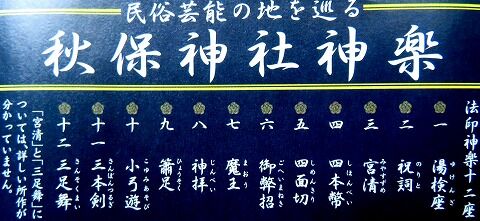 民俗芸能の地を巡る
秋保神社神楽
法印神楽十二座
一 湯検座 ゆけんざ
二 祝詞 のりと
三 宮清 みやすずめ
四 四本幣 しほんへい
五 四面切 しめんきり
六 御弊招 ごへいまねき
七 魔王 まおう
八 神拝 じんぺい
九 簫足 ひょうそく
十 小弓遊 こゆみあそび
十一 三本剣 さんぼんつるぎ
十二 三足舞 さんそくまい
「宮清」と「三足舞」に
ついては、詳しい所作が
分かっていません。